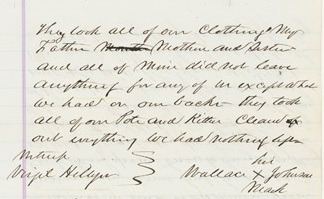 They took all of our Clothing My
Father Mother and Sister
and all of Mine did not leave
anything for any of us except what
we had on our backs they took
all of our Pots and Kittle Cleaned
out everything we had nothing left
his
Wallace X Johnson
Mark
Virgil Hillyer